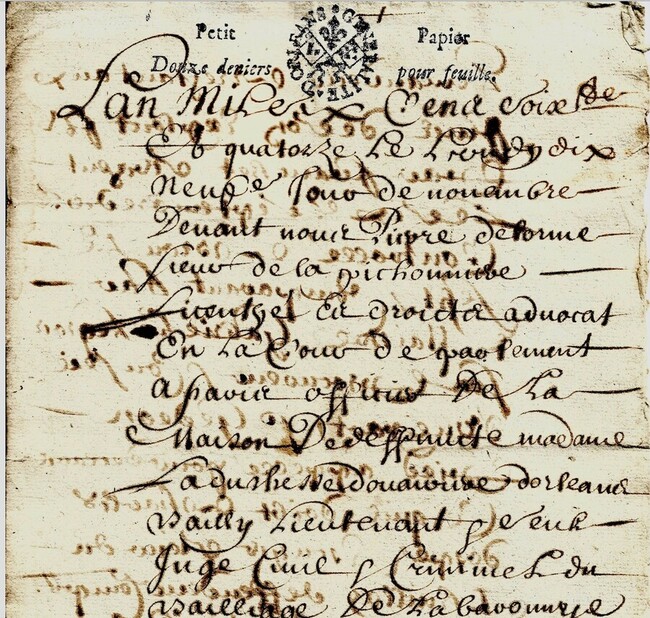 Petit Papier
GENERALITE D'ORLEANS
Douze deniers pour feuille.
Lan Mil six Cent soixte
Et quatorze Le Lundy dix
Neufe Jour de novembre
Devant nous Pierre delorme
sieur de la pichonniere
Licentyé Es droicts advocat
En La Cour de parlement
A paris officier De La
Maison De deffuncte madame
La duchesse douairiere dorleans
Bailly Lieutenant
Juge Civil & Criminel du
Bailliage De La baronnye